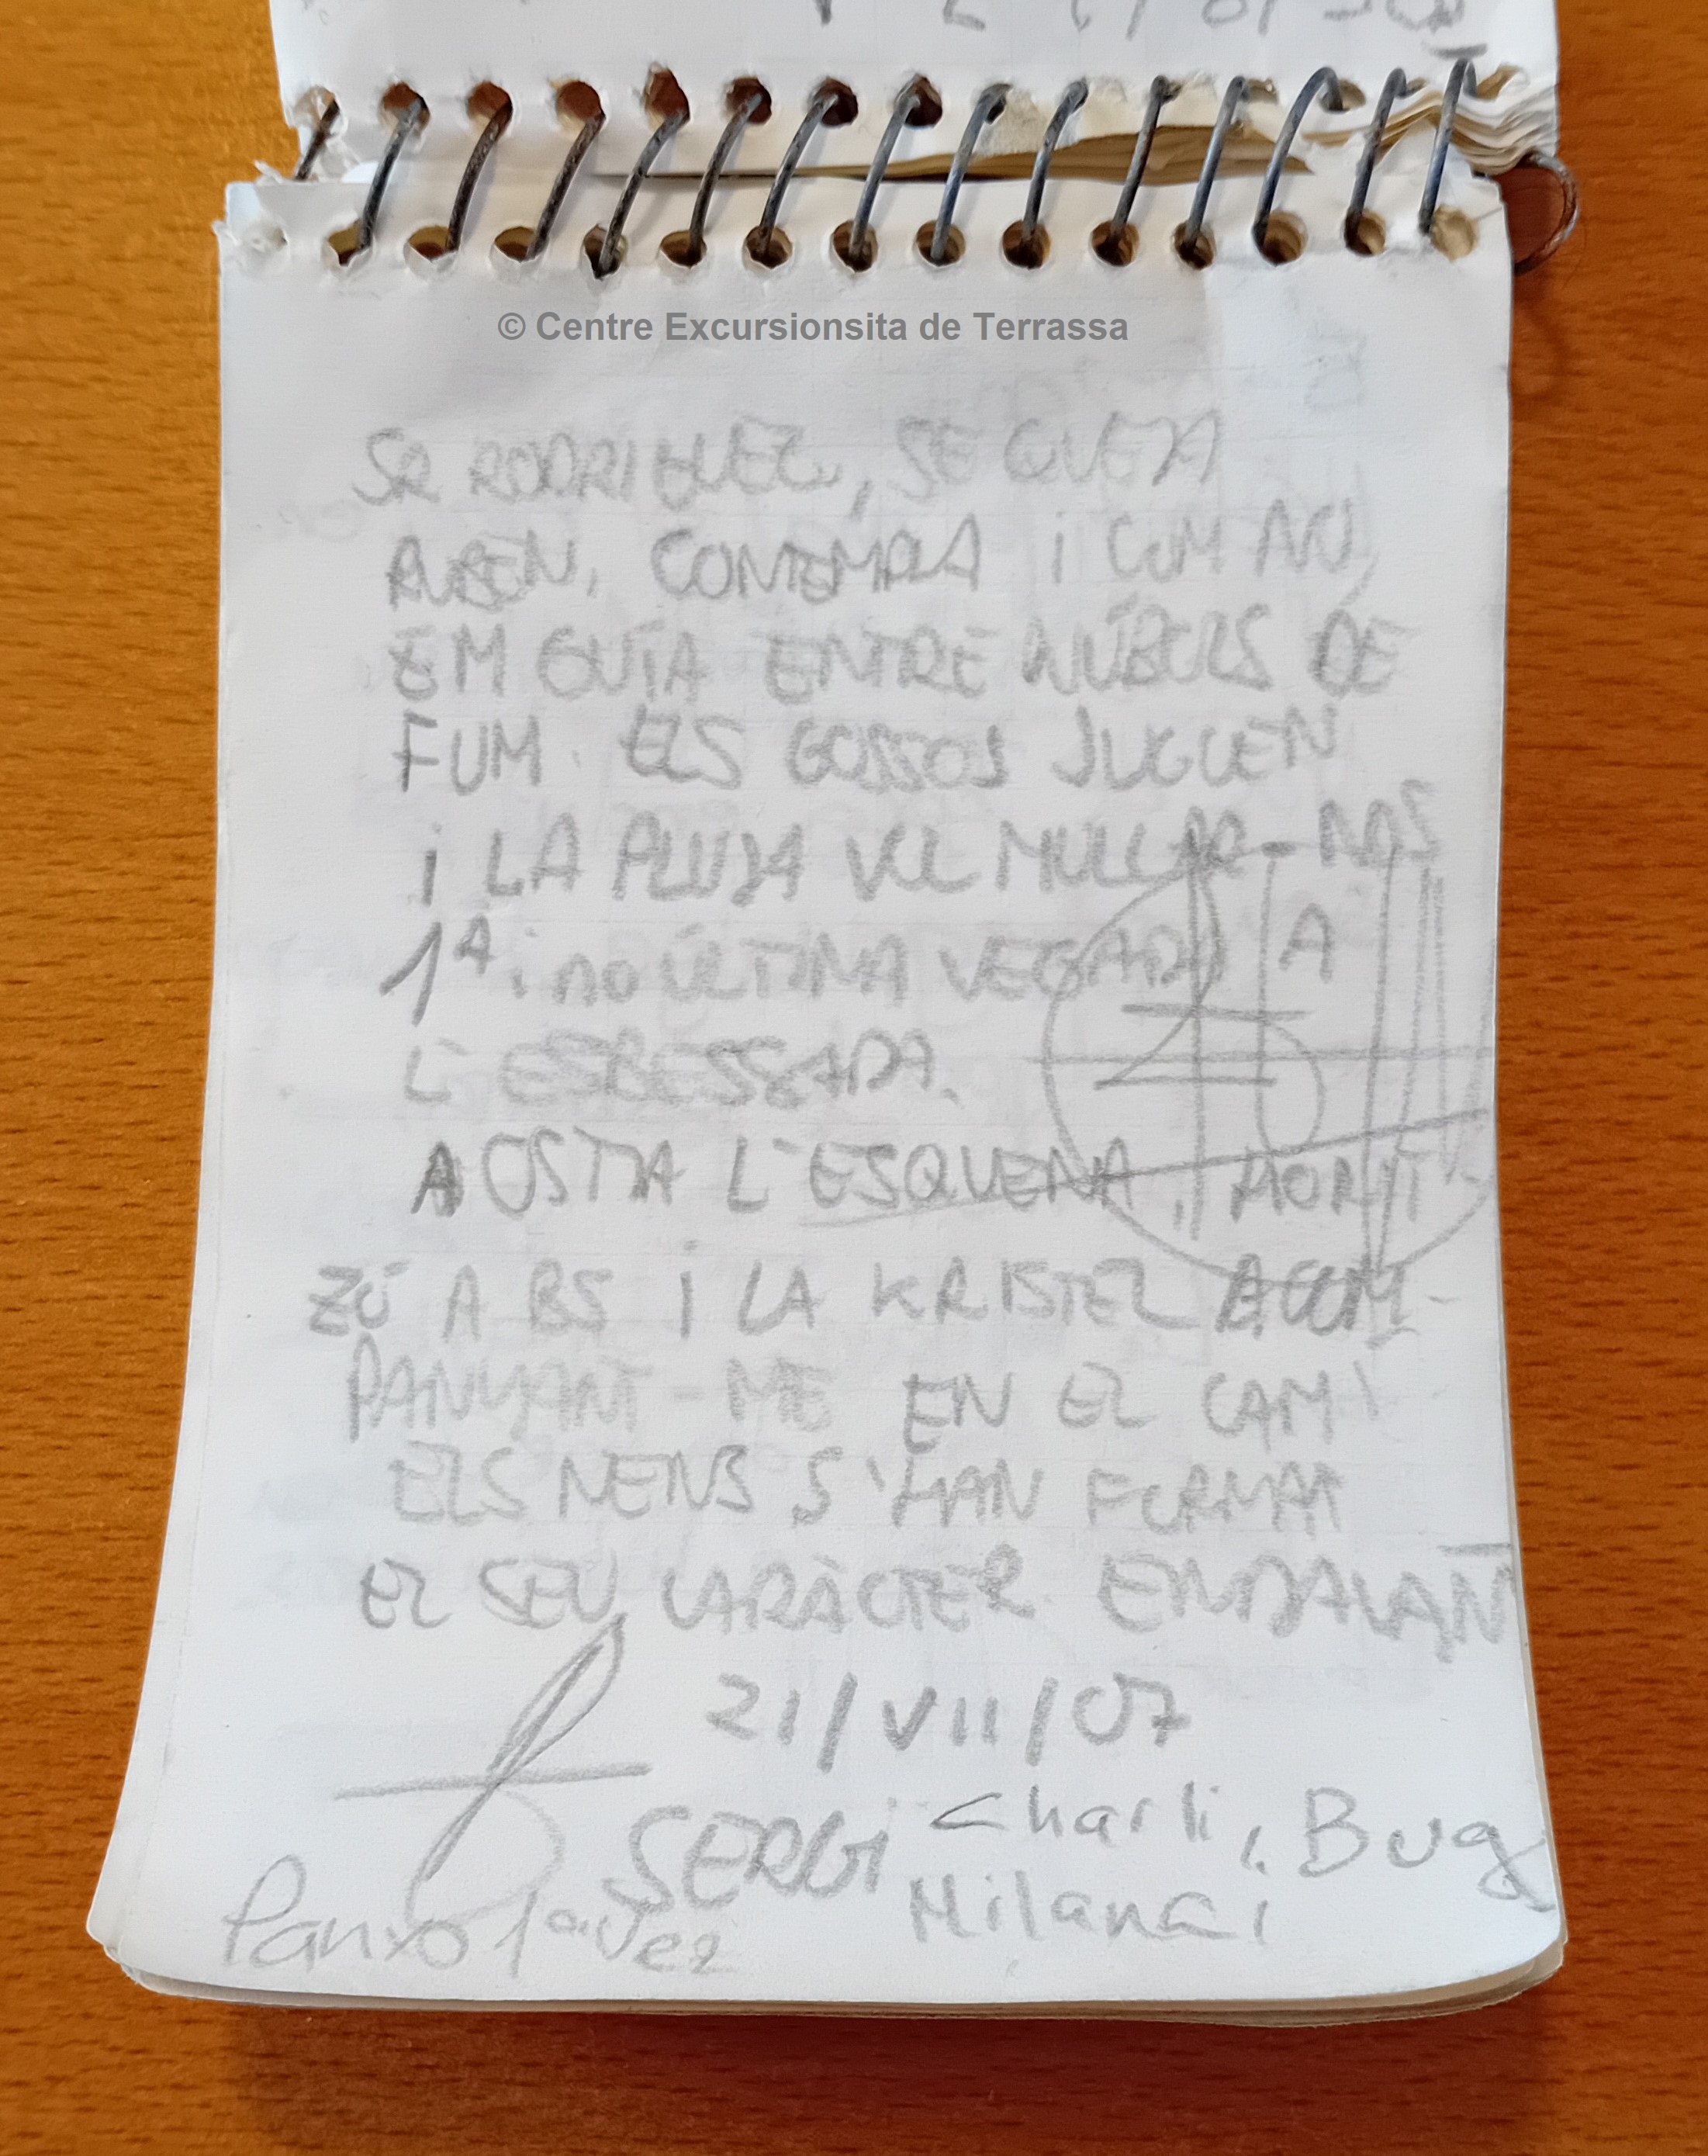 © Centre Excursionsita de Terrassa
SR RODRIGUEZ, SE QUEJA
RUBEN, CONTEMPLA i COM NO,
EM GUÍA ENTRE NÚBULS DE
FUM. ELS GOSSOS JUGUEN
i LA PLUJA VOL MULLAR-NOS
1A i no ÚLTIMA VEGADA A
L'ESBESSADA.
A OSTIA L'ESQUENA,
ZÓ A BS i LA KRISTEL ACOM-
PANYANT-ME EN EL CAMÍ
ELS NENS S'HAN FORMAT
EL SEU CARÀCTER ENJALAÑ
21/VII/07
SERGi Charli, Bug
Milana i
Panxo 1a Vez